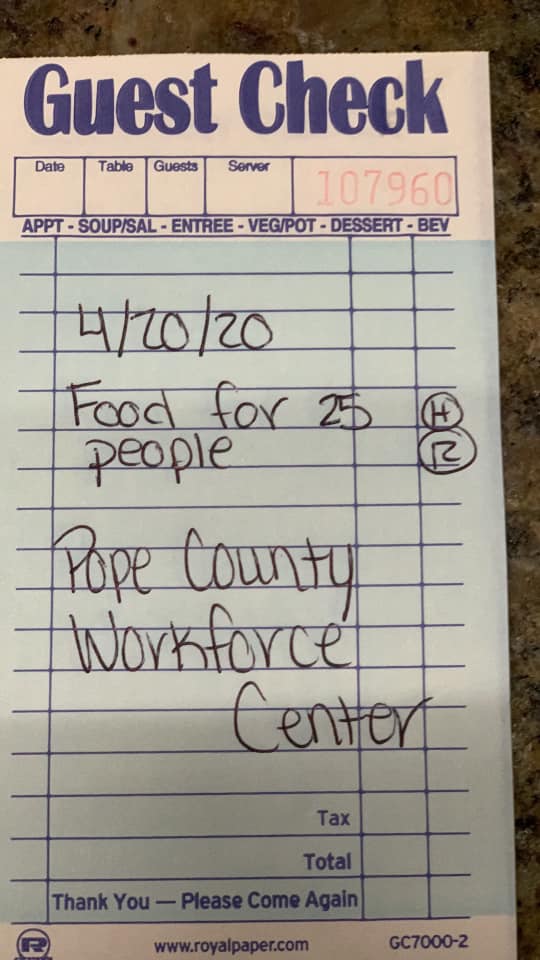 Guest Check
Date Table Guests Server 107960
APPT - SOUP/SAL - ENTREE - VEG/POT - DESSERT - BEV
4/20/20
Food for 25 H
people R
Pope County
Workforce
Center
Tax
Total
Thank You — Please Come Again
R www.royalpaper.com GC7000-2